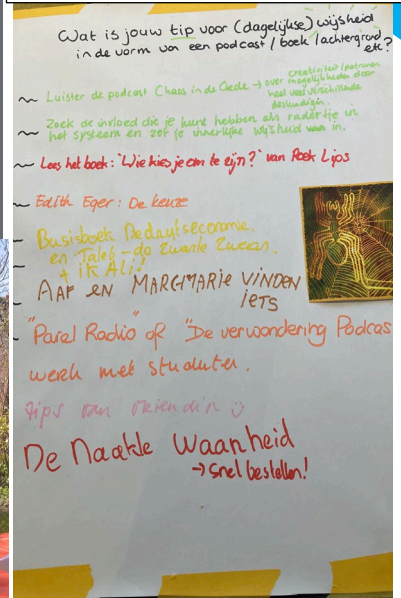 Wat is jouw tip voor (dagelijkse) wijsheid
in de vorm van een podcast / boek / achtergrond
etc?
~ Luister de podcast Chaos in de Orde → over creativiteit / patronen
mogelijkheden door
heel veel verschillende
deskundigen.
~ Zoek de invloed die je kunt hebben als radertje in
het systeem en zet je innerlijke wijsheid in.
~ Lees het boek: 'Wie kies je om te zijn?' van Roek Lips
~ Edith Eger: De keuze
- Basisboek Donut economie.
en Taleb - de Zwarte Zwaan.
+ ik Ali!
- AAF EN MARGMARIE VINDEN
IETS
- "Parel Radio" of "De verwondering Podcas
werk met studenten.
tips van vriendin ☺
De Naakte Waarheid
→ snel bestellen!